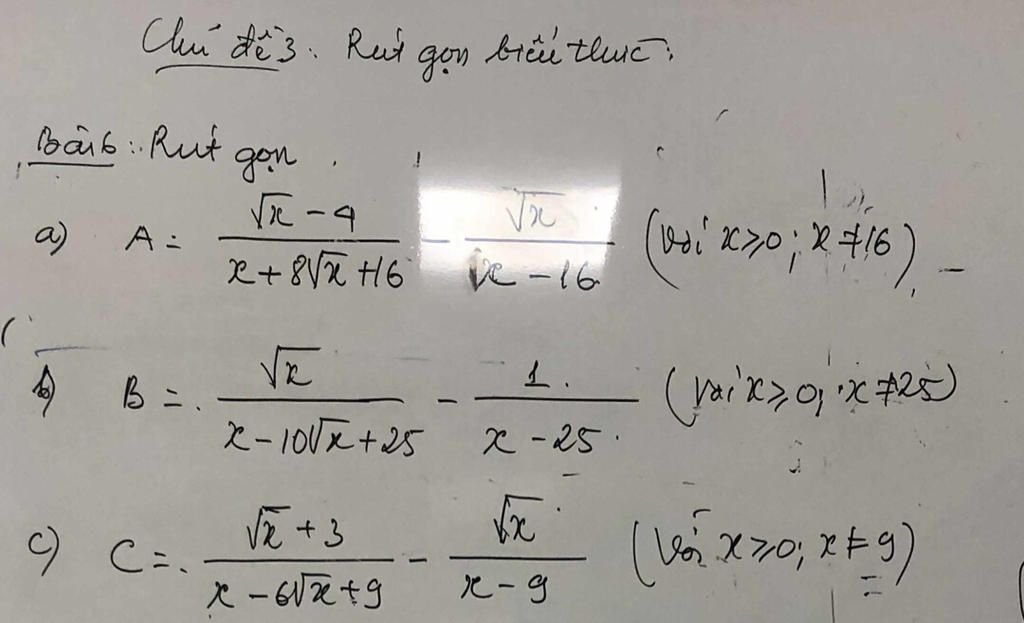 Chủ đề 3: Rút gọn biểu thức:
Bài 6: Rút gọn.
a) A = (√x - 4)/(x + 8√x + 16) - √x/(x - 16) (với x ≥ 0; x ≠ 16)
b) B = √x/(x - 10√x + 25) - 1/(x - 25) (với x ≥ 0; x ≠ 25)
c) C = (√x + 3)/(x - 6√x + 9) - √x/(x - 9) (với x ≥ 0; x ≠ 9)